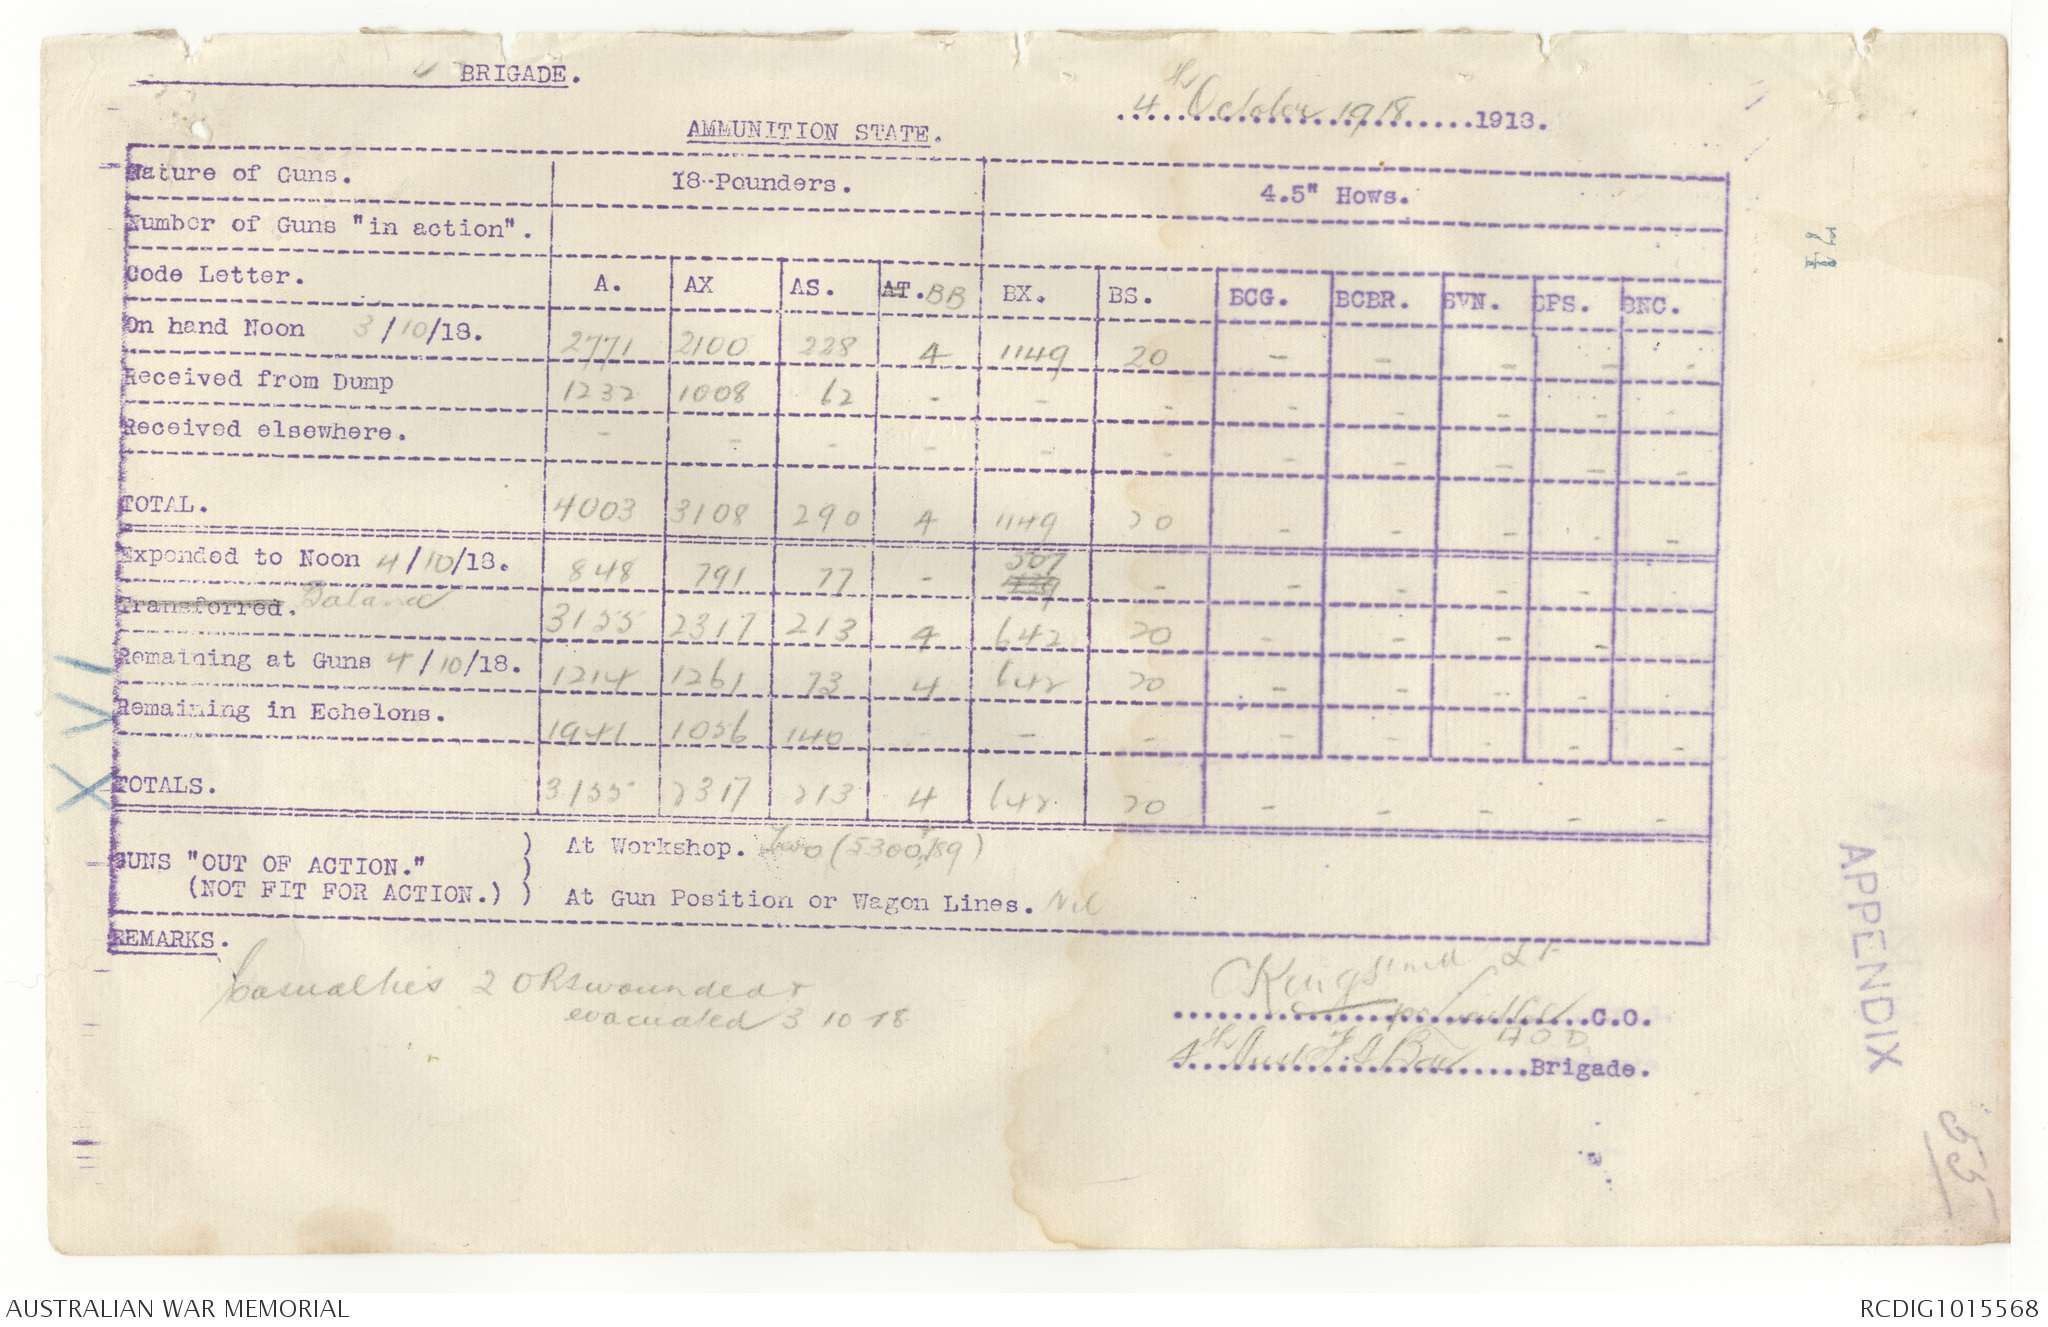 BRIGADE.
4th October 1918 1918.
AMMUNITION STATE.
Nature of Guns. 18-Pounders. 4.5" Hows.
Number of Guns "in action".
Code Letter. A. AX AS. AT. BB BX. BS. BCG. BCBR. BVN. BPS. BNC.
On hand Noon 3/10/18. 2771 2100 228 4 1149 20 - - - - -
Received from Dump 1232 1008 62 - - - - - - - -
Received elsewhere. - - - - - - - - - - -
TOTAL. 4003 3108 290 4 1149 20 - - - - -
Expended to Noon 4/10/18. 848 791 77 - 507 - - - - - -
Transferred. Balance 3155 2317 213 4 642 20 - - - - -
Remaining at Guns 4/10/18. 1214 1261 73 4 642 20 - - - - -
Remaining in Echelons. 1941 1056 140 - - - - - - - -
TOTALS. 3155 2317 213 4 642 20 - - - - -
GUNS "OUT OF ACTION." ) At Workshop. Two (5300,
(NOT FIT FOR ACTION.) ) At Gun Position or Wagon Lines. Nil
REMARKS.
Casualties 2 ORs wounded &
evacuated 3 10 18
C.O.
4th Aust F A Brigade.
XVI
APPENDIX
AUSTRALIAN WAR MEMORIAL
RCDIG1015568